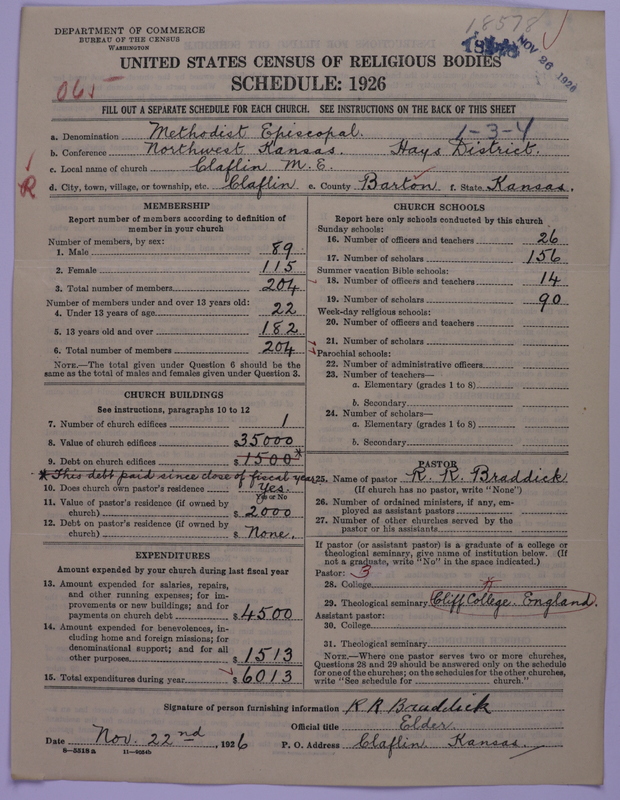 DEPARTMENT OF COMMERCE
BUREAU OF THE CENSUS
WASHINGTON
18578
NOV 26 1926
UNITED STATES CENSUS OF RELIGIOUS BODIES
SCHEDULE: 1926
065
FILL OUT A SEPARATE SCHEDULE FOR EACH CHURCH. SEE INSTRUCTIONS ON THE BACK OF THIS SHEET
a. Denomination Methodist Episcopal. 1-3-4
b. Conference Northwest Kansas. Hays District.
c. Local name of church Claflin M. E.
R
d. City, town, village, or township, etc. Claflin e. County Barton f. State Kansas.
MEMBERSHIP
Report number of members according to definition of
member in your church
Number of members, by sex:
1. Male 89
2. Female 115
3. Total number of members 204
Number of members under and over 13 years old:
4. Under 13 years of age 22
5. 13 years old and over 182
6. Total number of members 204
NOTE.—The total given under Question 6 should be
same as the total of males and females given under Question 3.
CHURCH BUILDINGS
See instructions, paragraphs 10 to 12
7. Number of church edifices 1
8. Value of church edifices $35000
9. Debt on church edifices $1500*
* This debt paid since close of fiscal year
10. Does church own pastor's residence Yes.
Yes or No
11. Value of pastor's residence (if owned by
church) $2000
12. Debt on pastor's residence (if owned by
church) $ None.
EXPENDITURES
Amount expended by your church during last fiscal year
13. Amount expended for salaries, repairs,
and other running expenses; for im-
provements or new buildings; and for
payments on church debt $4500
14. Amount expended for benevolences, in-
cluding home and foreign missions; for
denominational support; and for all
other purposes $1513
15. Total expenditures during year $6013
CHURCH SCHOOLS
Report here only schools conducted by this church
Sunday schools:
16. Number of officers and teachers 26
17. Number of scholars 156
Summer vacation Bible schools:
18. Number of officers and teachers 14
19. Number of scholars 90
Week-day religious schools:
20. Number of officers and teachers
21. Number of scholars
Parochial schools:
22. Number of administrative officers
23. Number of teachers—
a. Elementary (grades 1 to 8)
b. Secondary
24. Number of scholars—
a. Elementary (grades 1 to 8)
b. Secondary
PASTOR
25. Name of pastor R. R. Braddick
(If church has no pastor, write "None")
26. Number of ordained ministers, if any, em-
ployed as assistant pastors
27. Number of other churches served by the
pastor or his assistants
If pastor (or assistant pastor) is a graduate of a college or
theological seminary, give name of institution below. (If
not a graduate, write "No" in the space indicated.)
Pastor: 3
28. College
29. Theological seminary Cliff College. England.
Assistant pastor:
30. College
31. Theological seminary
NOTE.—Where one pastor serves two or more churches,
Questions 28 and 29 should be answered only on the schedule
for one of the churches; on the schedules for the other churches,
write "See schedule for church."
Signature of person furnishing information R R Braddick
Official title Elder
Date Nov. 22nd, 1926 P. O. Address Claflin Kansas.
8—5518a 11—9034b